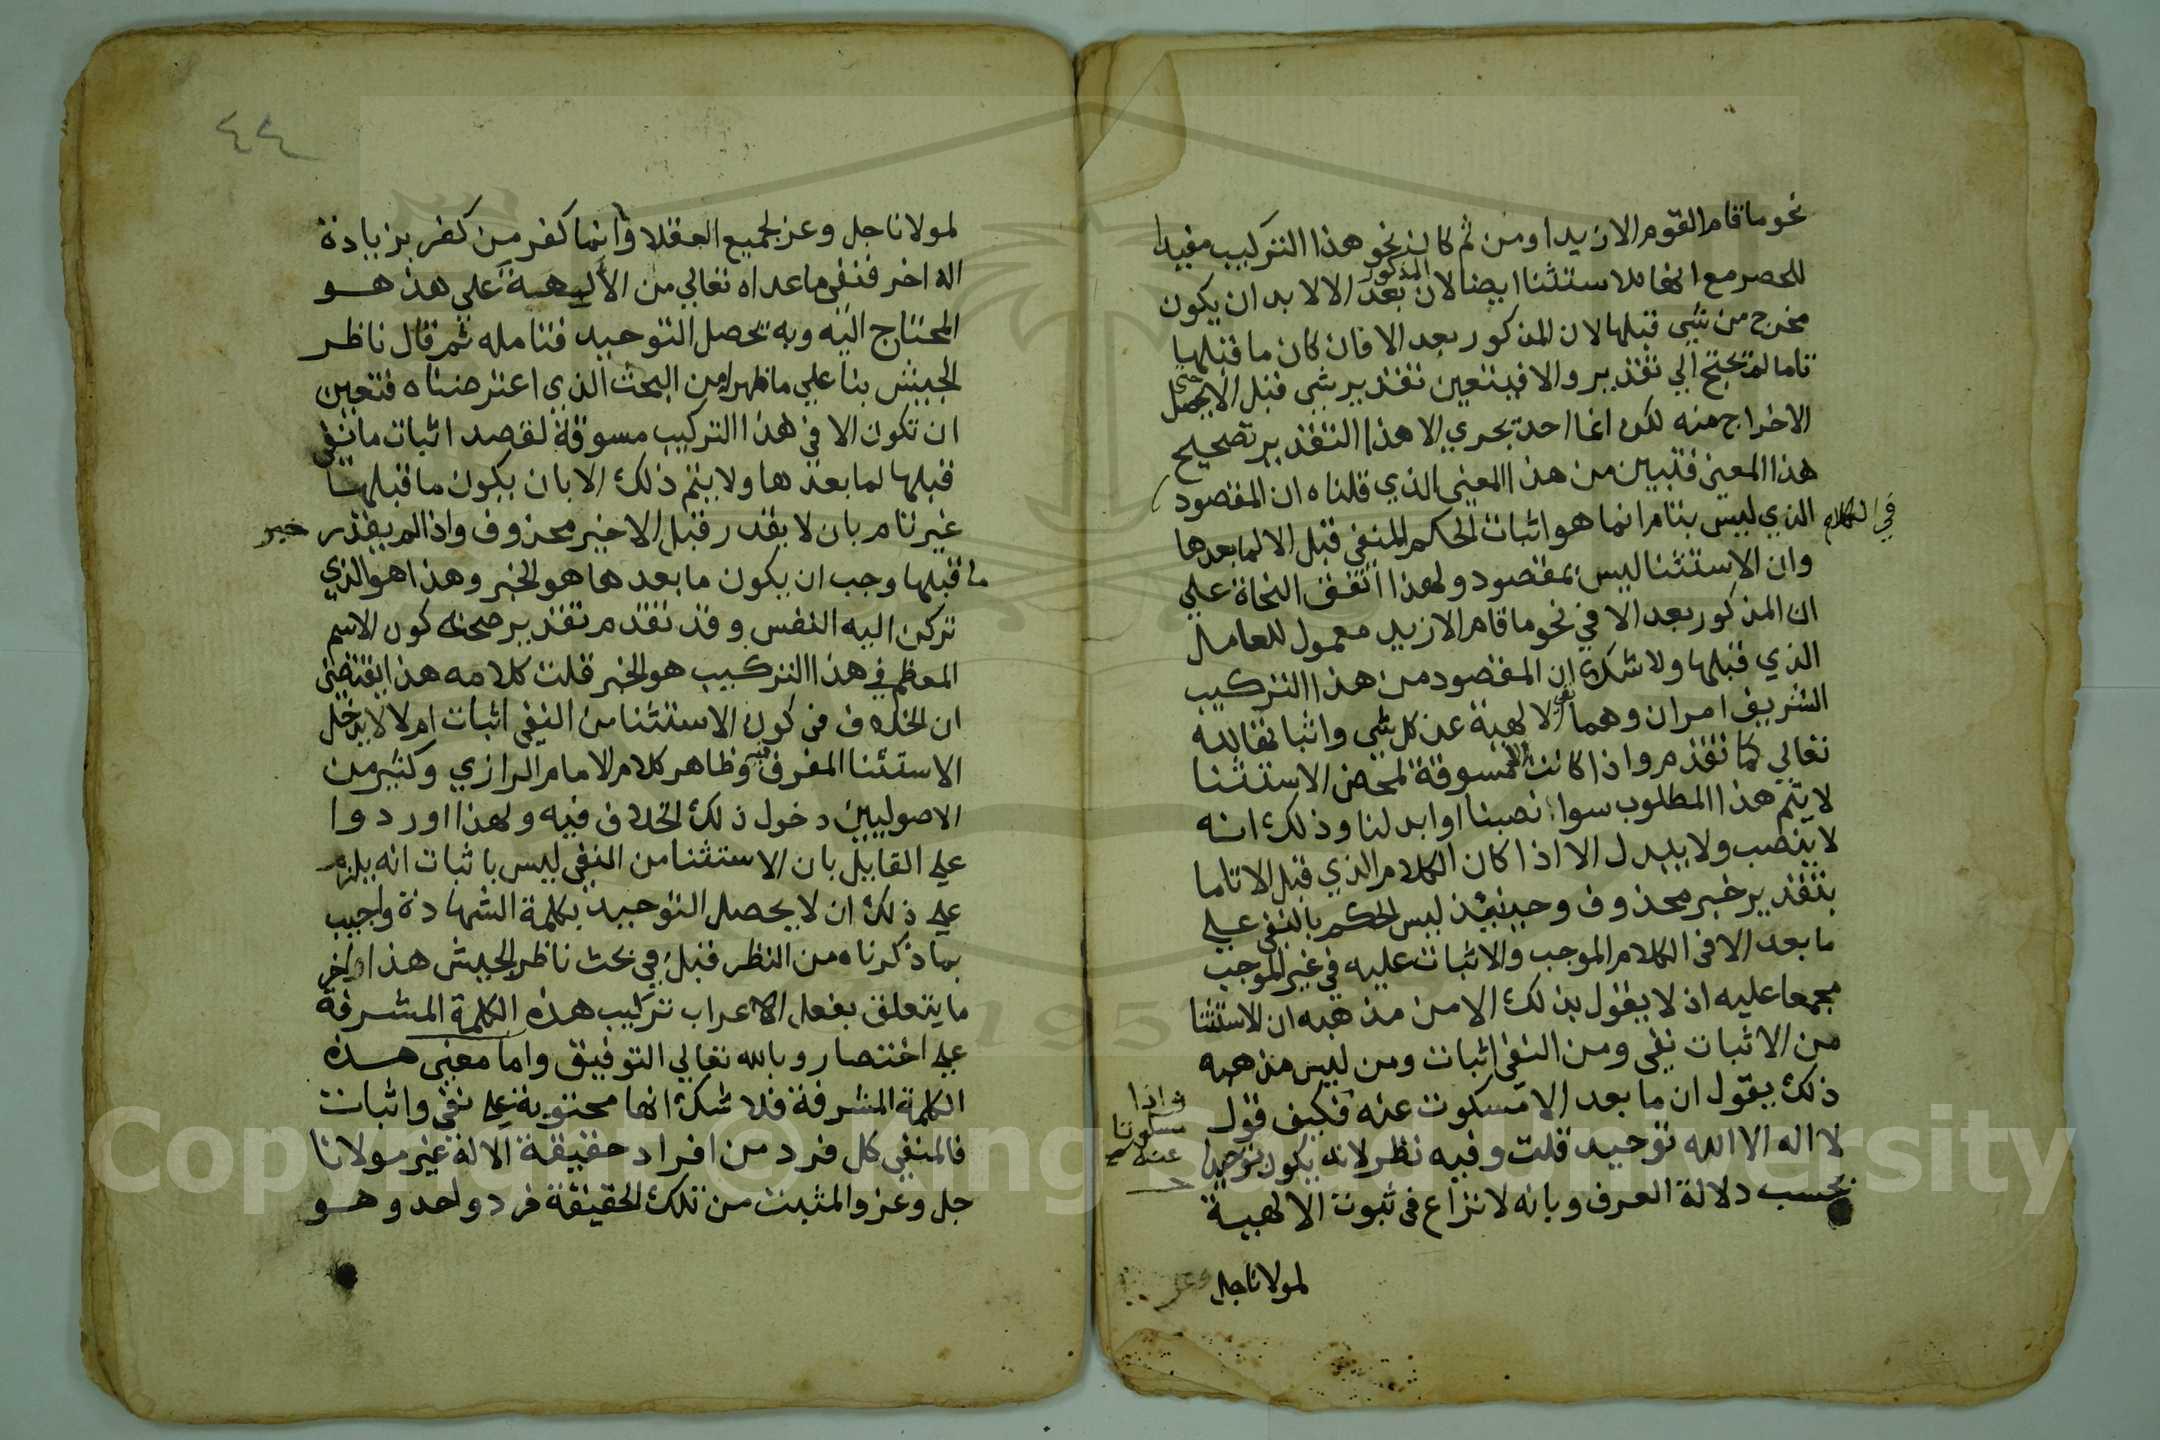 نحو ما قام القوم الا زيدا ومن ثم كان نحو هذا التركيب مفيدا
للحصر مع انها للاستثنا ايضا لان المذكور بعد الا لا بد ان يكون
مخرج من شي قبلها لان المذكور بعد الا فان كان ما قبلها
تاما لم تحتج الي تقدير والا فيتعين تقدير شي قبل الا حتي يحصل
الاخراج منه لكن انما احد تجري الا هذا التقدير تصحيح
هذا المعني فتبين من هذا المعني الذي قلناه ان المقصود
في الكلام الذي ليس بتام انما هو اثبات الحكم المنفي قبل الا لما بعدها
وان الاستثنا ليس بمقصود ولهذا اتفق النحاة علي
ان المذكور بعد الا في نحو ما قام الا زيد معمول للعامل
الذي قبلها ولا شك ان المقصود من هذا التركيب
الشريف امران وهما نفي الالهية عن كل شي واثباتها لله
تعالي كما تقدم واذا كانت الا مسوقة لمحض الاستثنا
لا يتم هذا المطلوب سوا نصبنا او ابدلنا وذلك انه
لا ينصب ولا يبدل الا اذا كان الكلام الذي قبل الا تاما
بتقدير خبر محذوف وحينئذ ليس الحكم بالنفي علي
ما بعد الا في الكلام الموجب والاثبات عليه في غير الموجب
مجمعا عليه اذ لا يقول بذلك الا من مذهبه ان الاستثنا
من الاثبات نفي ومن النفي اثبات ومن ليس مذهبه
ذلك يقول ان ما بعد الا مسكوت عنه فكيف قول
واذا
مسكوتا
عنه
لا اله الا الله توحيد قلت وفيه نظر لانه يكون توحيدا
بحسب دلالة العرف وبانه لا نزاع في ثبوت الالهية
لمولانا جل وعز
٤٤
لمولانا جل وعز لجميع العقلا وانما كفر من كفر بزيادة
اله اخر فنفي ما عداه تعالي من الالهية علي هذ هو
المحتاج اليه وبه يحصل التوحيد فتامله ثم قال ناظر
الجيش بنا علي ما ظهر له من البحث الذي اعترضناه فتعين
ان تكون الا في هذا التركيب مسوقة لقصد اثبات ما نفي
قبلها لما بعدها ولا يتم ذلك الا بان يكون ما قبلها
غير تام بان لا يقدر قبل الا خبر محذوف واذا لم يقدر خبر
ما قبلها وجب ان يكون ما بعدها هو الخبر وهذا هو الذي
تركن اليه النفس وقد تقدم تقدير صحة كون الاسم
المعظم في هذا التركيب هو الخبر قلت كلامه هذا يقتضي
ان الخلاف في كون الاستثنا من النفي اثبات ام لا لا يدخل
الاستثنا المفرغ فيه وظاهر كلام الامام الرازي وكثير من
الاصوليين دخول ذلك الخلاف فيه ولهذا اوردوا
علي القايل بان الاستثنا من النفي ليس باثبات انه يلزم
علي ذلك ان لا يحصل التوحيد بكلمة الشهادة واجيب
بما ذكرناه من النظر قبل في بحث ناظر الجيش هذا اخر
ما يتعلق بفعل الاعراب تركيب هذه الكلمة المشرفة
علي اختصار وبالله تعالي التوفيق واما معني هذه
الكلمة المشرفة فلا شك انها محتوية علي نفي واثبات
فالمنفي كل فرد من افراد حقيقة الاله غير مولانا
جل وعز والمثبت من تلك الحقيقة فرد واحد وهو
Copyright © King Saud University
195